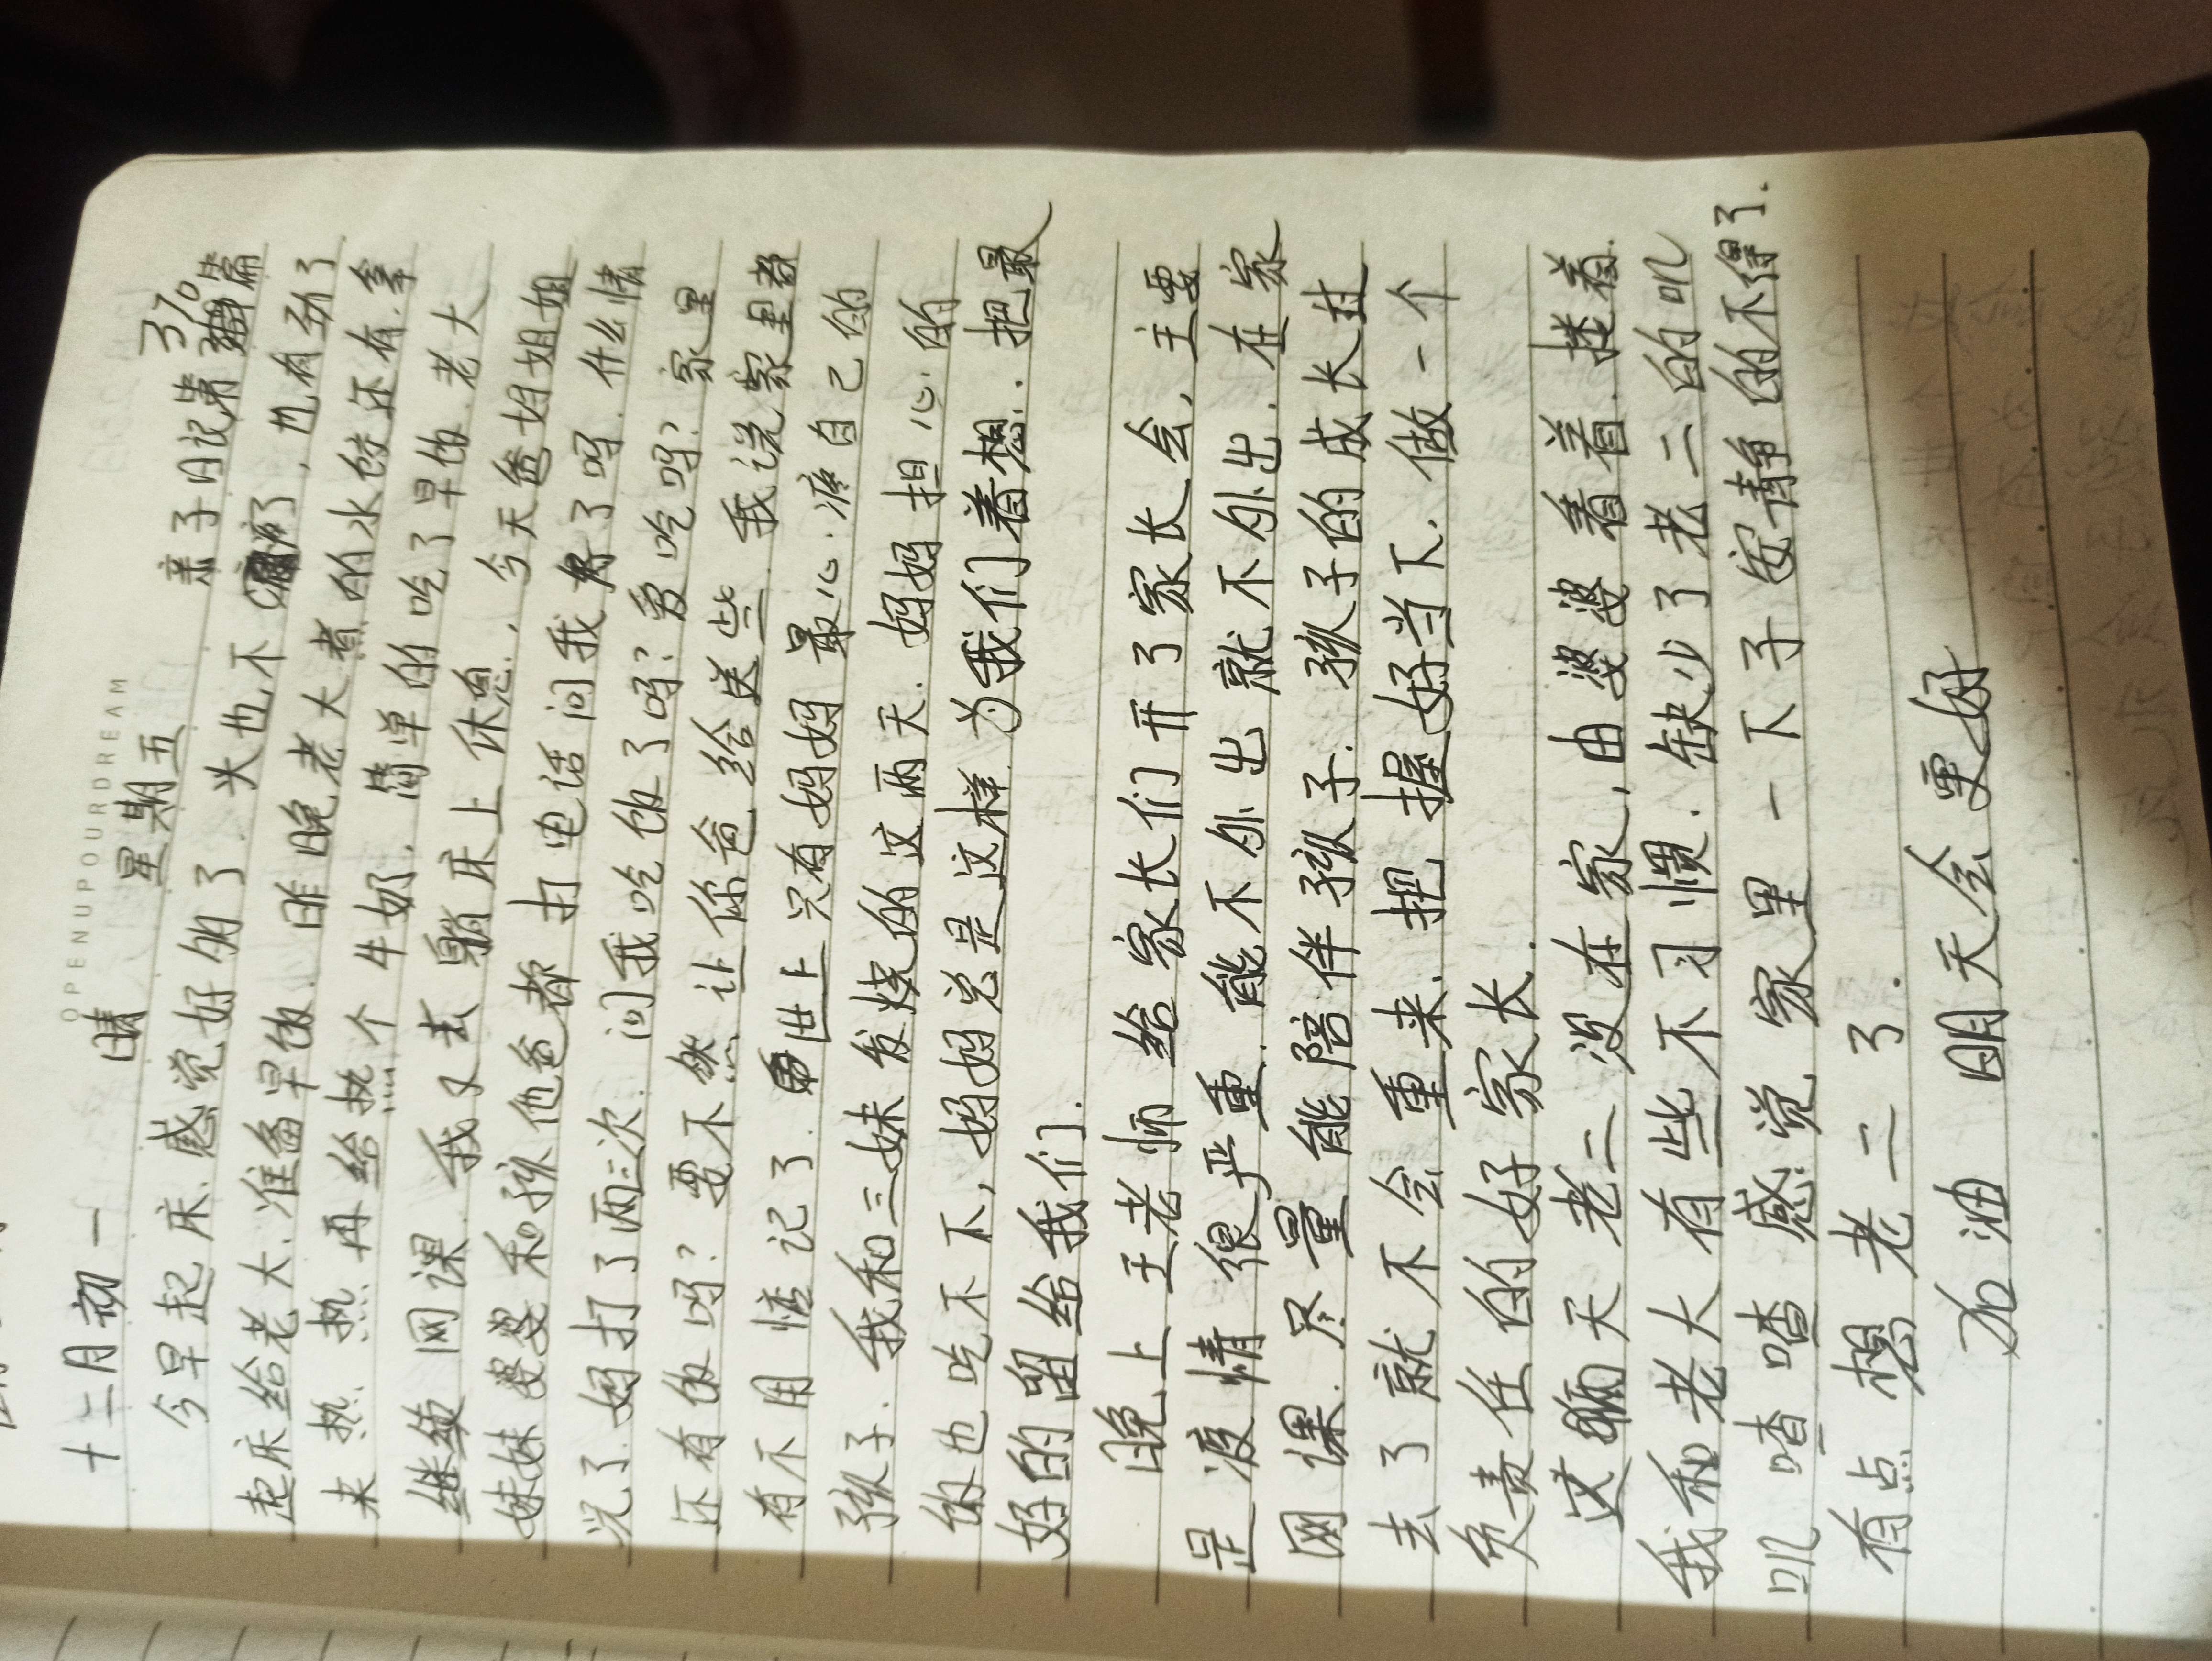 OPENUPOURDREAM
十二月初一 晴 星期五
亲子日记第370篇
今早起床.感觉好多了.头也不痛了,也有劲了
起床给老大.准备早饭.昨晚老大煮的水饺还有.拿
来热热.再给热个牛奶.简单的吃了早饭.老大
继续网课.我又去躺床上休息.,今天爸妈姐姐
妹妹婆婆和孩他爸都打电话问我好了吗.什么情
况了.妈打了两三次.问我吃饭了吗?爱吃吗?家里
还有饭吗?要不然让你爸给送些.我说家里都
有不用惦记了.世上只有妈妈最心.疼自己的
孩子.我和三妹发烧的这两天.妈妈担心.的
饭也吃不下,妈妈总是这样为我们着想..把最
好的留给我们.
晚上王老师给家长们开了家长会,主要
是疫情很严重.能不外出就不外出.在家
网课.尽量能陪伴孩子.孩子的成长过
去了就不会重来.把握好当下.做一个
负责任的好家长.
这两天老二没在家,由婆婆看着.搂着.
我和老大有些不习惯.缺少了老二的叽
叽喳喳感觉家里一下子安静的不得了.
有点想老二了.
加油 明天会更好